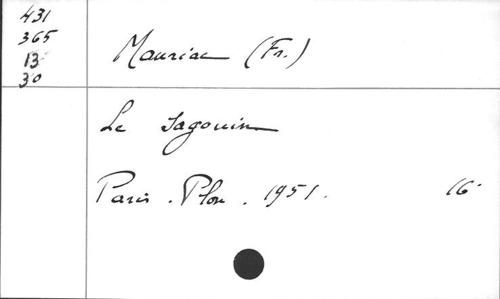 431
365
13
30
Mauriac (Fr.)
Le Sagouin
Paris. Plon. 1951. 16°